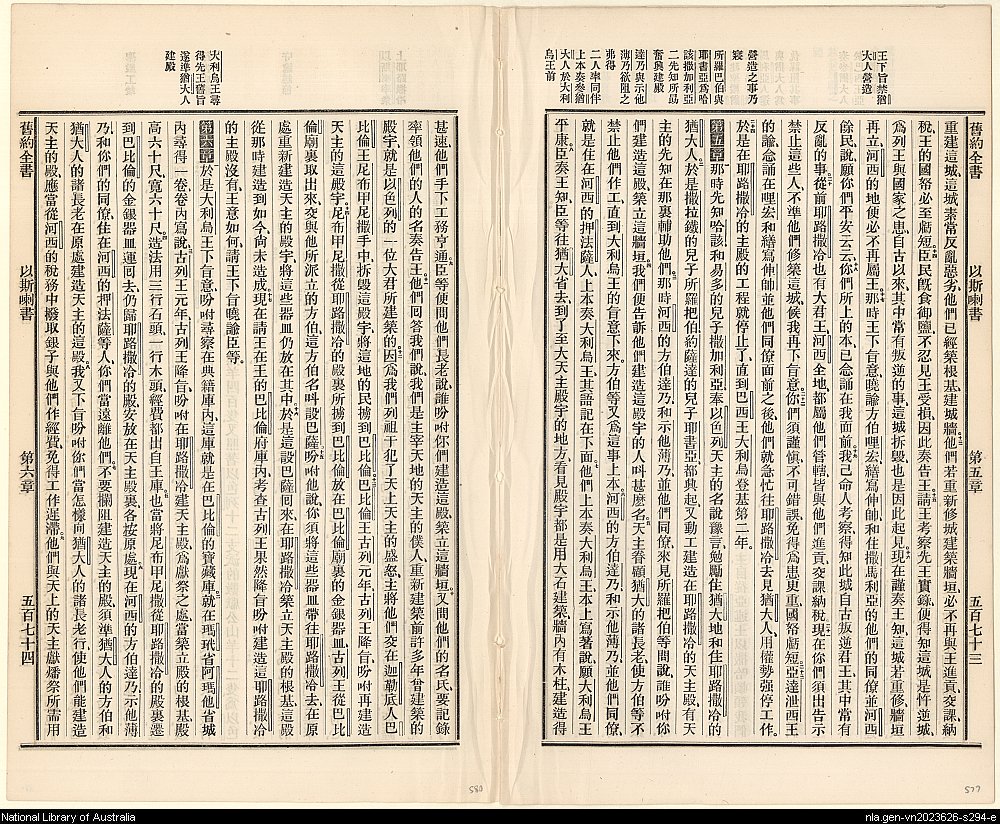 王下旨禁猶
大人營造
營造之事乃
寢
所羅巴伯與
耶書亞爲哈
該撒加利亞
二先知所勗
奮興建殿
達乃與示他
薄乃欲阻之
弗得
二人率同伴
上本奏叅猶
大人於大利
烏王前
舊約全書 以斯喇書 第五章 五百七十三
重建這城、這城素常反亂惡劣、他們已經築根基建城牆、他們若重新修城建築牆垣、必不再與王進貢交課納
稅、王的國帑必至虧短、臣民旣食御鹽、不忍見王受損、因此奏告王、請王考察先王實錄、便得知這城是忤逆城、
爲列王與國家之患、自古以來其中常有叛逆的事、這城拆毀也是因此起見、現在謹奏王知、這城若重修牆垣
再立、河西的地便必不再屬王、那時王下旨意曉諭方伯哩宏、繕寫伸帥、和住撒馬利亞的他們的同僚、並河西
餘民、說、願你們平安云云、你們所上的本、已念誦在我面前、我已命人考察、得知此城自古叛逆君王、其中常有
反亂的事、從前耶路撒冷也有大君王、河西全地都屬他們管轄、皆與他們進貢交課納稅、現在你們須出告示
禁止這些人、不準他們修築這城、候我再下旨意、你們須謹愼、不可錯誤、免得爲患更重、國帑虧短、亞達泄西王
的諭念誦在哩宏和繕寫伸帥並他們同僚面前之後、他們就急忙往耶路撒冷去見猶大人、用權勢强停工作。
於是在耶路撒冷的主殿的工程就停止了、直到巴西王大利烏登基第二年。
第五章 那時先知哈該和易多的兒子撒加利亞、奉以色列天主的名說豫言、勉勵住猶大地和住耶路撒冷的
猶大人、於是撒拉鐵的兒子所羅把伯、約薩達的兒子耶書亞都興起、又動工建造在耶路撒冷的天主殿、有天
主的先知在那裏輔助他們、那時河西的方伯達乃和示他薄乃並他們同僚、來見所羅把伯等問說、誰吩咐你
們建造這殿、築立這牆垣、我們便告訴他們、建造這殿宇的人呌甚麽名、天主眷顧猶大的諸長老、使方伯等不
禁止他們作工、直到大利烏王的旨意下來、方伯等又爲這事上本、河西的方伯達乃和示他薄乃並他們同僚、
就是住在河西的押法薩人、上本奏大利烏王、其語記在下面、他們上本奏大利烏王、本上爲著說、願大利烏王
平康、臣奏王知、臣等往猶大省去、到了至大天主殿宇的地方、看見殿宇都是用大石建築、牆內有木柱、建造得
577
大利烏王尋
得先王舊旨
遂準猶大人
建殿
甚速、他們手下工務亨通、臣等便問他們長老說、誰吩咐你們建造這殿、築立這牆垣、又問他們的名氏、要記錄
率領他們的人的名奏告王、他們回答我們說、我們是主宰天地的天主的僕人、重新建築前許多年曾建築的
殿宇、就是以色列的一位大君所建築的、因爲我們列祖干犯了天上天主的盛怒、主將他們交在迦勒底人巴
比倫王尼布甲尼撒手中、拆毀這殿宇、將這地的民擄到巴比倫、巴比倫王古列元年、古列王降旨吩咐再建造
天主的這殿宇、尼布甲尼撒從耶路撒冷的殿裏所擄到巴比倫放在巴比倫廟裏的金銀器皿、古列王從巴比
倫廟裏取出來、交與他所派立的方伯、這方伯名呌設巴薩、吩咐他說、你須將這些器皿帶往耶路撒冷去、在原
處重新建造天主的殿宇、將這些器皿仍放在其中、於是這設巴薩囘來、在耶路撒冷築立天主殿的根基、這殿
從那時建造到如今尙未造成、現在請王在王的巴比倫府庫內考查、古列王果然降旨吩咐建造這耶路撒冷
的主殿沒有、王意如何、請王下旨曉諭臣等。
第六章 於是大利烏王下旨意、吩咐尋察在典籍庫內、這庫就是在巴比倫的寶藏庫、就在瑪玳省阿瑪他省城
內尋得一卷、卷內寫說、古列王元年、古列王降旨、吩咐在耶路撒冷建天主殿、爲獻祭之處、當築立殿的根基、殿
高六十尺、寬六十尺、造法用三行石頭、一行木頭、經費都出自王庫、也當將尼布甲尼撒從耶路撒冷的殿裏遷
到巴比倫的金銀器皿運囘去、仍歸耶路撒冷的殿、安放在天主殿裏、各按原處、現在河西的方伯達乃示他薄
乃和你們的同僚住在河西的押法薩等人、你們當遠離他們、不要攔阻建造天主的殿、須準猶大人的方伯和
猶大人的諸長老在原處建造天主的這殿、我又下旨吩咐你們當怎樣向猶大人的諸長老行、使他們能建造
天主的殿、應當從河西的稅務中撥取銀子與他們作經費、免得工作遲滯、他們與天上的天主獻燔祭所需用
舊約全書 以斯喇書 第六章 五百七十四
580
National Library of Australia
nla.gen-vn2023626-s294-e